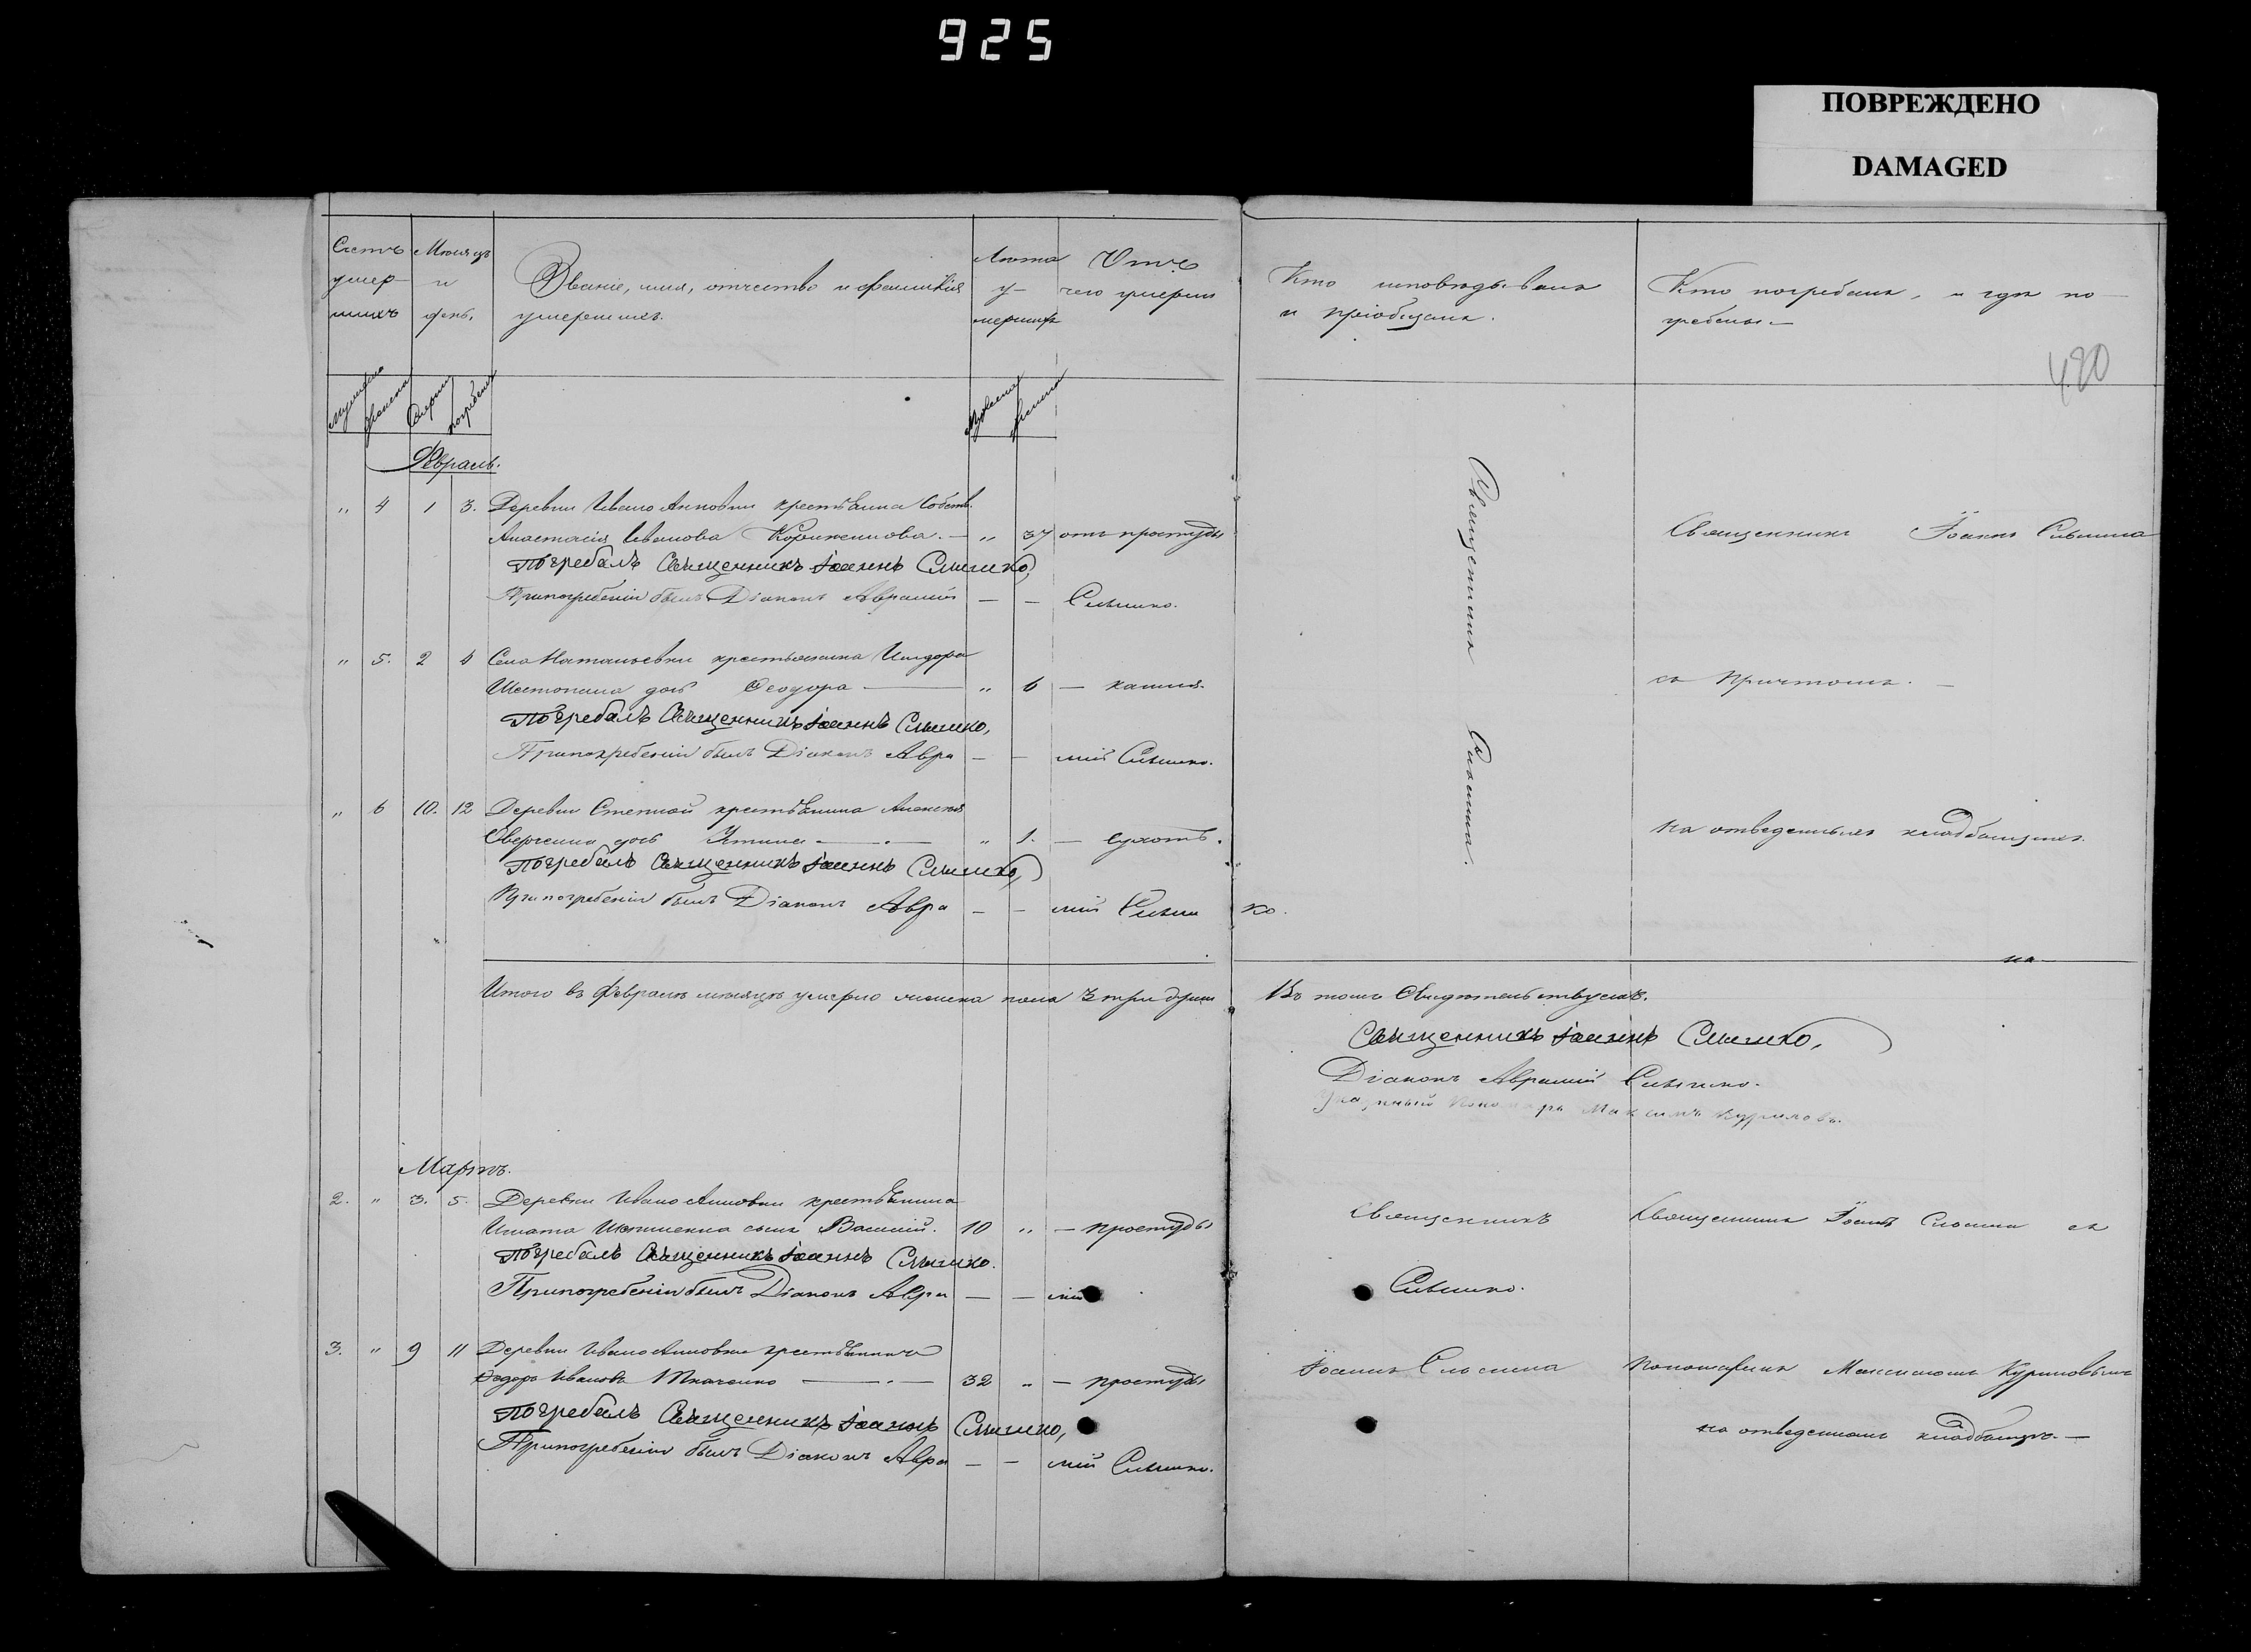 925
ПОВРЕЖДЕНО
DAMAGED
480
Счетъ умер- шихъ
Мѣсяцъ и день.
Званіе, имя, отчество и фамилія
умершихъ.
Лѣта у- мершихъ
Отъ чего умерли
Кто исповѣдывалъ
и пріобщалъ.
Кто погребалъ, и гдѣ по-
гребены.
мужеска
женска
Смерти
погребенія
мужеска
женска
Февраль.
" 4 1 3. Деревни Ивано Анновки крестьянина собств.
Анастасія Иванова — " 37 отъ простуды
Погребалъ Священникъ Іоаннъ Слышко,
При погребеніи былъ Діаконъ Аврамій — — Слышко.
Священникъ Слышка.
Священникъ Іоаннъ Слышка
" 5. 2 4 Села Натальевки крестьянина
Шестопала дочь Феодора — " 6 — кашля.
съ причтомъ. —
Погребалъ Священникъ Іоаннъ Слышко,
При погребеніи былъ Діаконъ Авра — — мій Слышко.
" 6 10. 12 Деревни Степной крестьянина Алексѣя
дочь — " 1. — сухотъ.
на отведенныхъ кладбищахъ.
Погребалъ Священникъ Іоаннъ Слышко,
При погребеніи былъ Діаконъ Авра — — мій Слыш ко.
на
Итого въ Февралѣ мѣсяцѣ умерло женска пола 3 три души
Въ томъ свидѣтельствуемъ.
Священникъ Іоаннъ Слышко,
Діаконъ Аврамій Слышко.
Указный Пономарь Максимъ Куриловъ.
Мартъ.
2. " 3. 5. Деревни Ивано Анновки крестьянина
Игната сынъ Василій. 10 " — простуды
Священникъ
Священникъ Іоаннъ Слышка съ
Погребалъ Священникъ Іоаннъ Слышко.
При погребеніи былъ Діаконъ Авра — — мій
Слышко.
3. " 9 11 Деревни Ивано Анновки крестьянинъ
Федоръ Ивановъ Ткаченко — 32 " — простуды
Іоаннъ Слышка
Пономаремъ Максимомъ Куриловымъ
Погребалъ Священникъ Іоаннъ Слышко,
на отведенномъ кладбищѣ. —
При погребеніи былъ Діаконъ Авра — — мій Слышко.